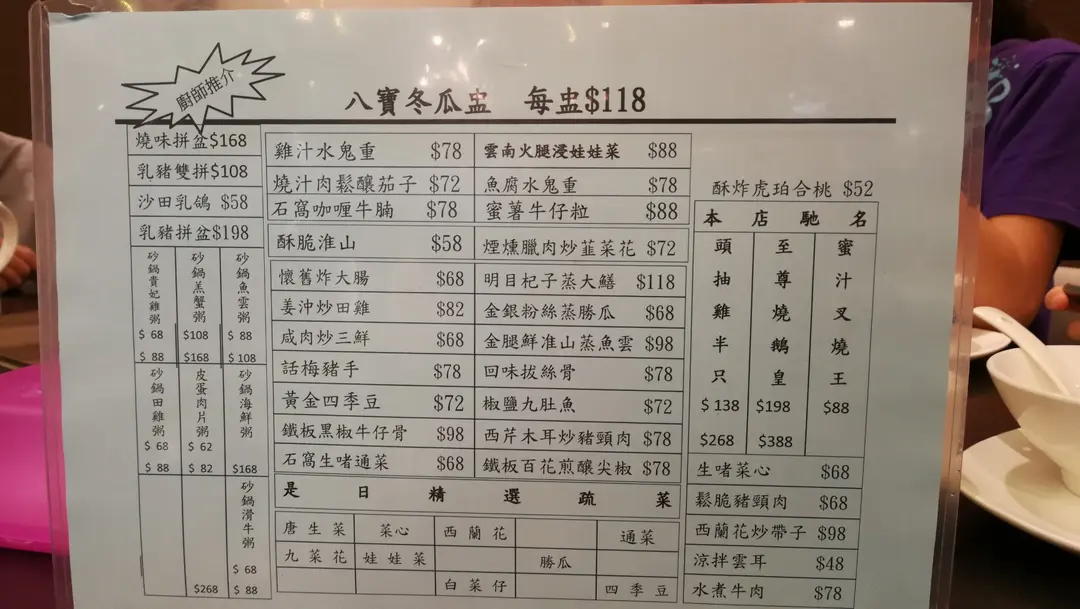 廚師推介
八寶冬瓜盅 每盅$118
燒味拼盆$168
乳豬雙拼$108
沙田乳鴿 $58
乳豬拼盆$198
砂鍋貴妃雞粥 $68 $88
砂鍋羔蟹粥 $108 $168
砂鍋魚雲粥 $88 $108
砂鍋田雞粥 $68 $88
皮蛋肉片粥 $62 $82
砂鍋海鮮粥 $168
$268
砂鍋滑牛粥 $68 $88
雞汁水鬼重 $78
燒汁肉鬆釀茄子 $72
石窩咖喱牛腩 $78
酥脆淮山 $58
懷舊炸大腸 $68
姜沖炒田雞 $82
咸肉炒三鮮 $68
話梅豬手 $78
黃金四季豆 $72
鐵板黑椒牛仔骨 $98
石窩生啫通菜 $68
雲南火腿浸娃娃菜 $88
魚腐水鬼重 $78
蜜薯牛仔粒 $88
煙燻臘肉炒韮菜花 $72
明目杞子蒸大鱔 $118
金銀粉絲蒸勝瓜 $68
金腿鮮准山蒸魚雲 $98
回味拔絲骨 $78
椒鹽九肚魚 $72
西芹木耳炒豬頸肉 $78
鐵板百花煎釀尖椒 $78
是日精選疏菜
唐生菜 菜心 西蘭花 通菜
九菜花 娃娃菜 勝瓜
白菜仔 四季豆
酥炸虎珀合桃 $52
本店馳名
頭抽雞半只 $138 $268
至尊燒鵝皇 $198 $388
蜜汁叉燒王 $88
生啫菜心 $68
鬆脆豬頸肉 $68
西蘭花炒帶子 $98
涼拌雲耳 $48
水煮牛肉 $78